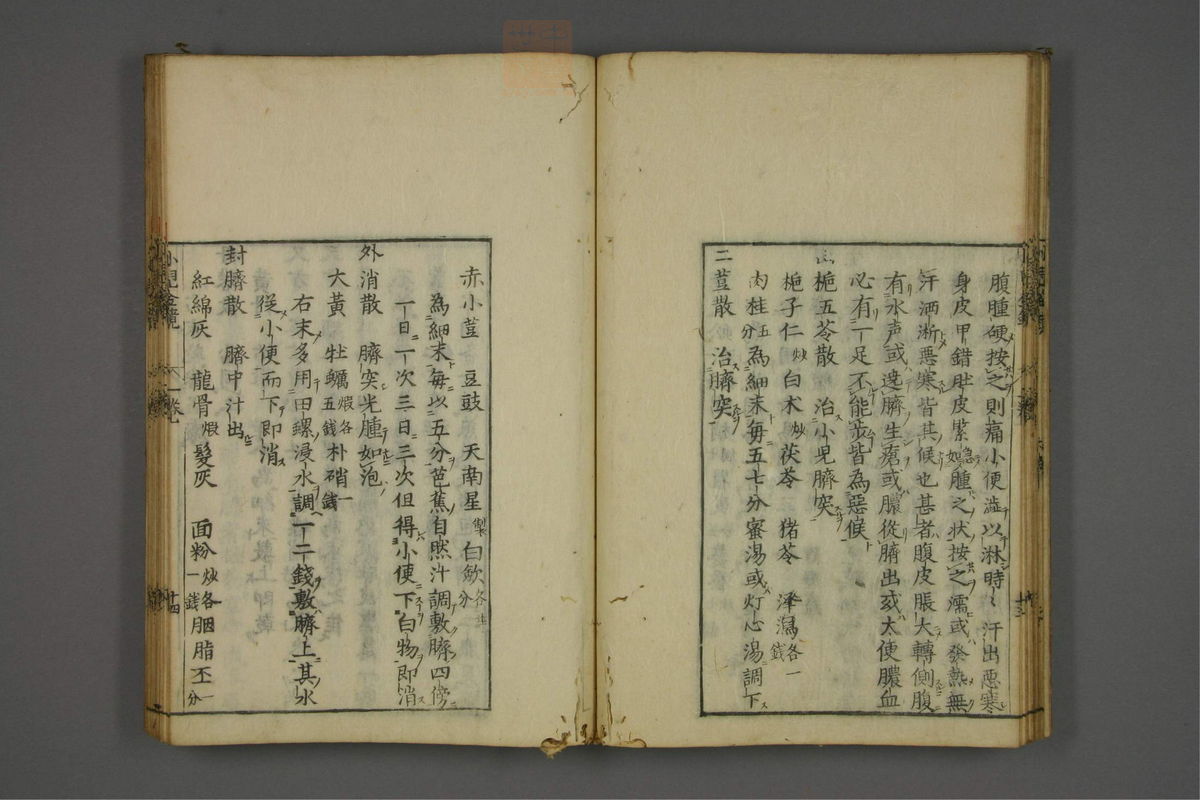 腹腫硬按之則痛小便澁以淋時々汗出悪寒
身皮甲錯肚皮緊急如腫之状按之濡或發熱無
汗洒淅悪寒皆其候也甚者腹皮脹大轉側腹
有水声或遶臍生瘡或膿從臍出或太便膿血
必有一足不能步皆為惡候
梔五苓散 治小児臍突
梔子仁炒 白术炒 茯苓 猪苓 澤瀉各一錢
肉桂五分 為細末毎五七分蜜湯或灯心湯調下
二荳散 治臍突
十三
赤小荳 豆豉 天南星製 白歛各一分
為細末毎以五分芭蕉自然汁調敷臍四傍
一日一次三日三次但得小便下白物即消
外消散 臍突光腫如泡
大黄 牡蠣煅各五錢 朴硝一錢
右末多用田螺浸水調一二錢敷臍上其水
從小便而下即消
封臍散 臍中汁出
紅綿灰 龍骨煅 髮灰 面粉炒各一錢 胭脂丕一分
小兒全鏡
十四